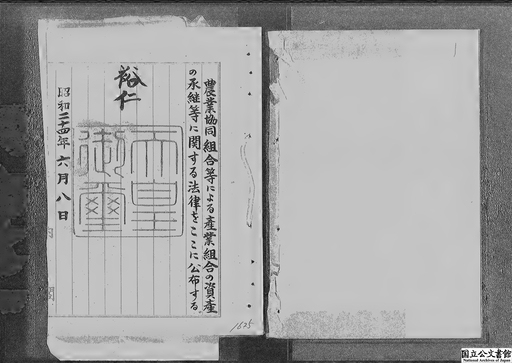 農業協同組合等による産業組合の資産
の承継等に関する法律をここに公布する
裕仁
天皇
御璽
昭和二十四年六月八日
内閣
1625
国立公文書館
National Archives of Japan